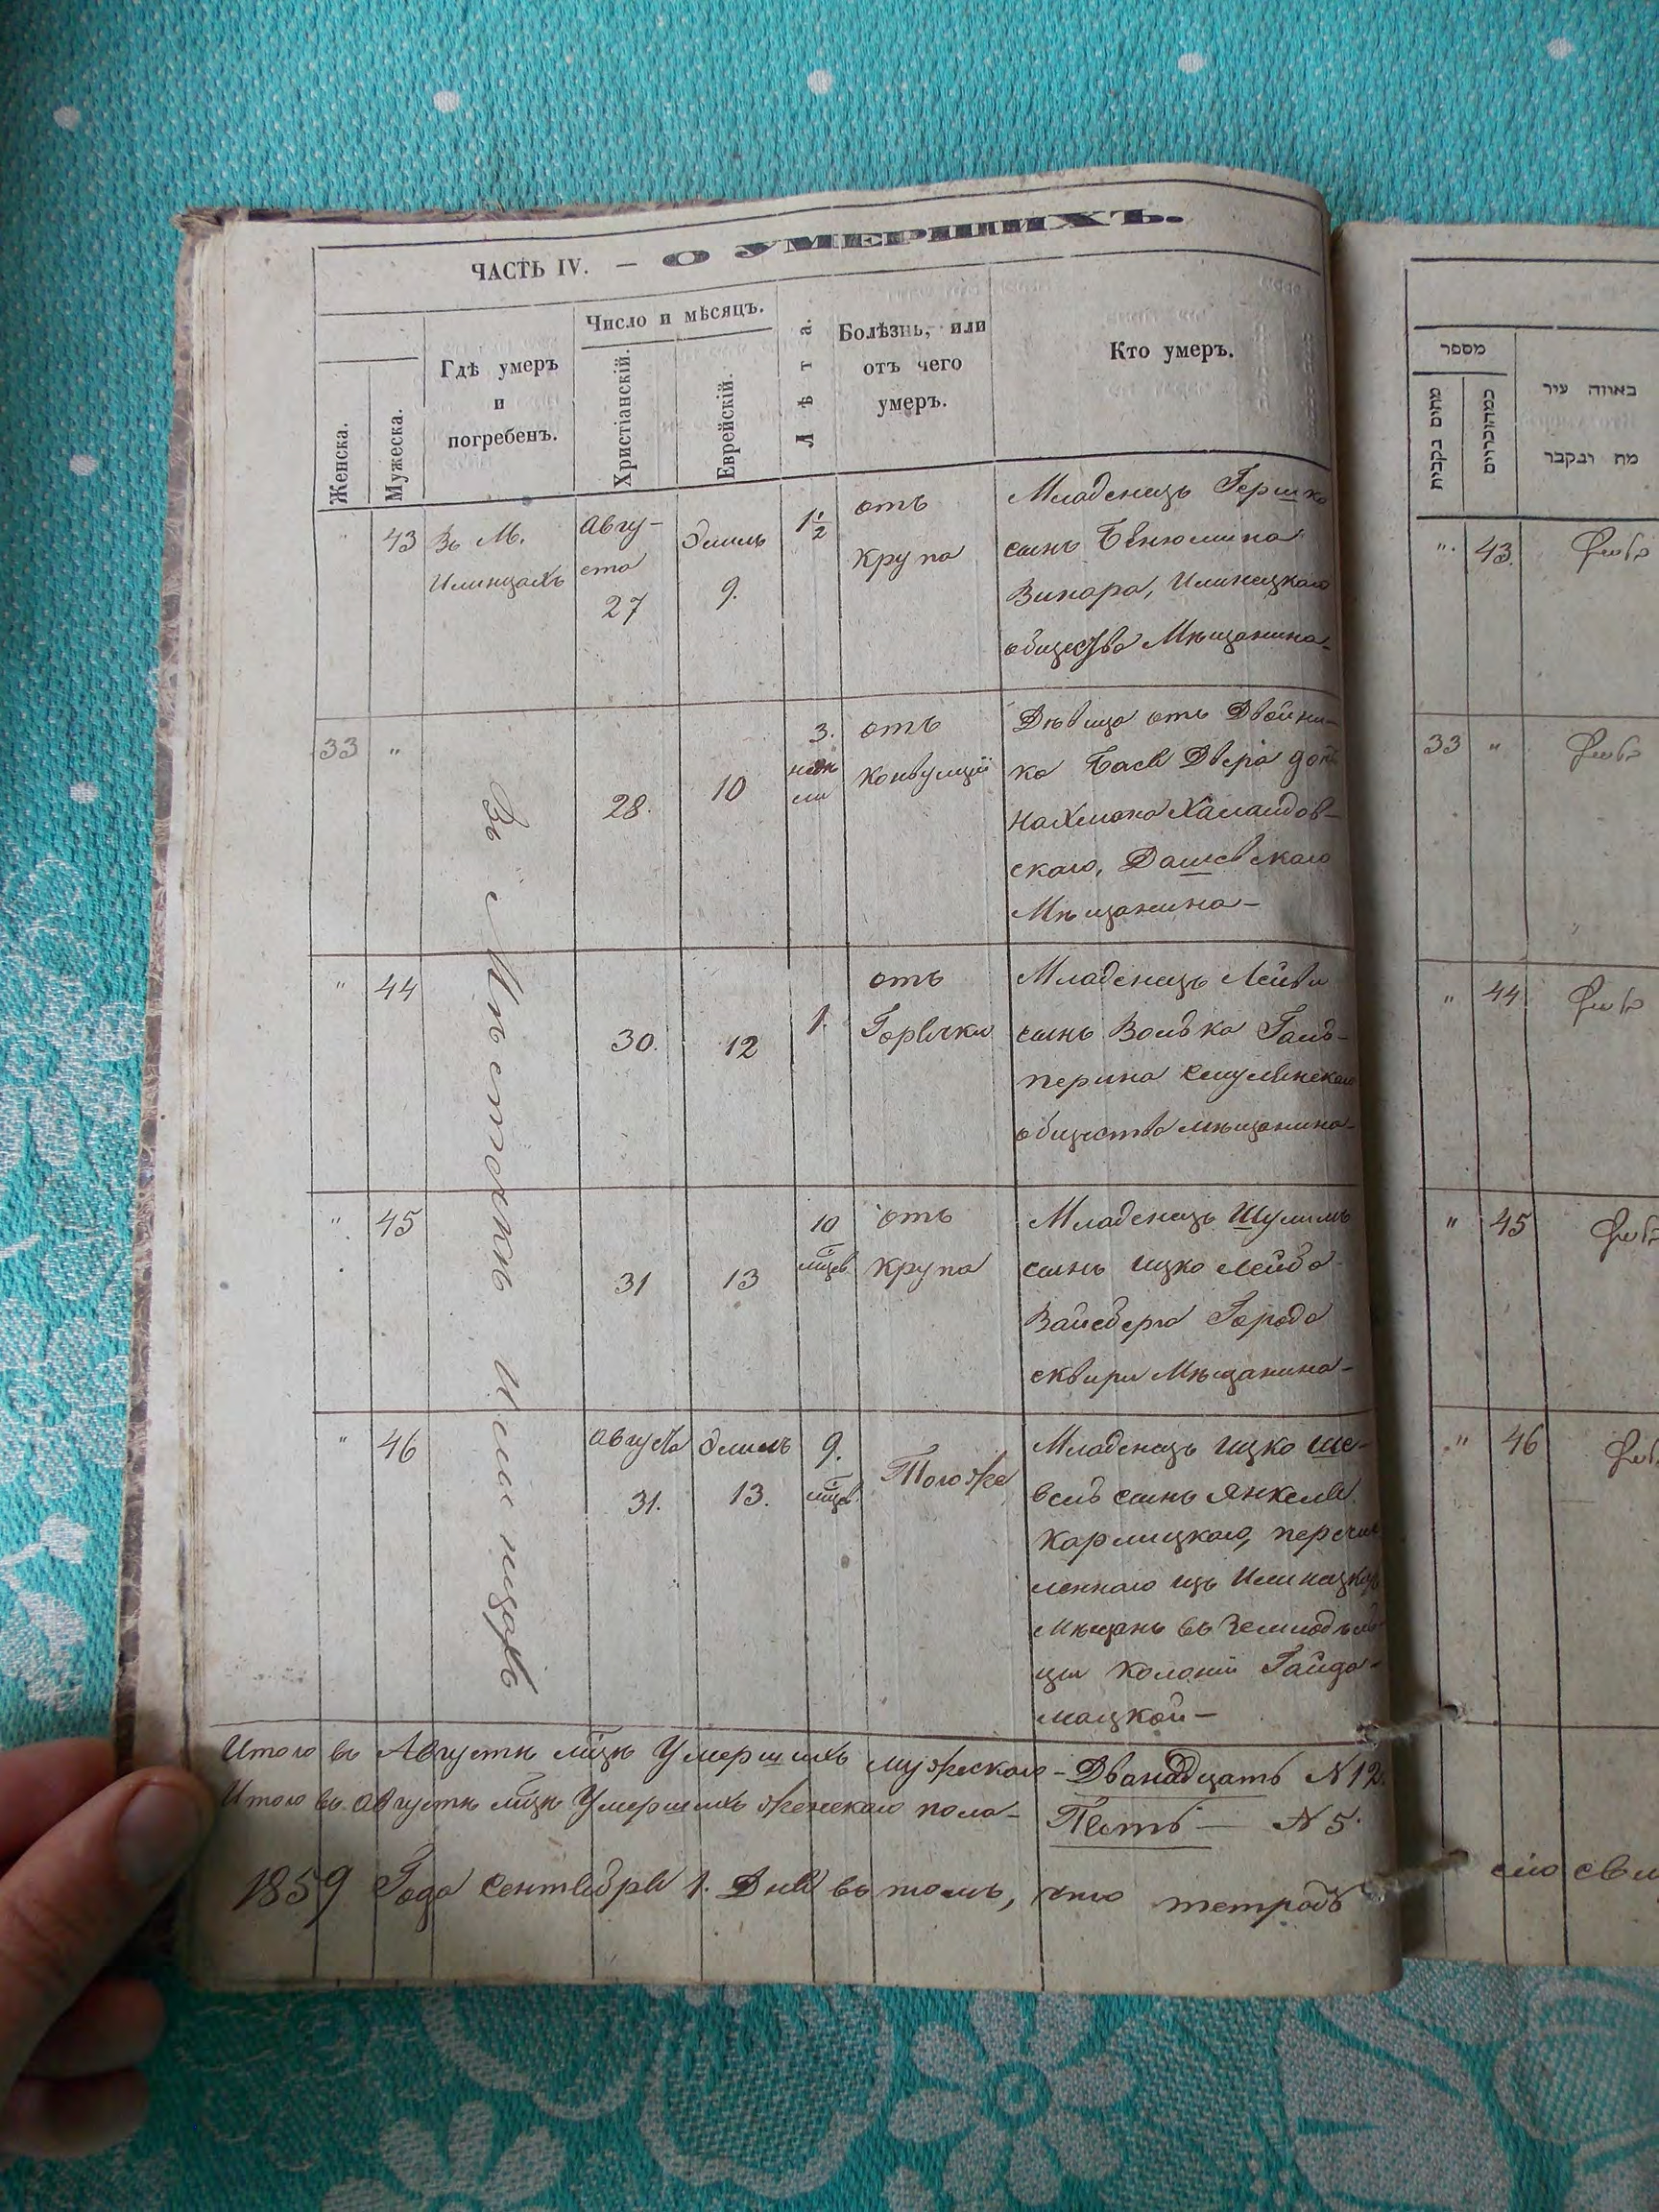 ЧАСТЬ IV. — О УМЕРШИХЪ.
Женска.
Мужеска.
Гдѣ умеръ
и
погребенъ.
Число и мѣсяцъ.
Христіанскій.
Еврейскій.
Лѣта.
Болѣзнь, или
отъ чего
умеръ.
Кто умеръ.
" 43 Въ М.
Илинцахъ
Авгу-
ста
27
Элилъ
9.
1 1/2
отъ
крупа
Младенецъ Гершко
сынъ Бѣнюмина
Винара, Илинецкаго
общества Мѣщанина-
33 "
28.
10
3.
недѣ
ли
отъ
Конвулцій
Дѣвица отъ Двойни-
ка Бася Двера дочь
Нахмана
скаго, Дашевскаго
Мѣщанина-
" 44
30.
12
1.
отъ
Горячки
Младенецъ Лейви
сынъ Волька Галь-
перина
общества мѣщанина-
" 45
31
13
10
мцев.
отъ
крупа
Младенецъ Шулимъ
сынъ Ицко Лейба
Вайсберга Города
сквири Мѣщанина-
" 46
Августа
31.
Элилъ
13.
9.
мцев.
Того же
Младенецъ Ицко Ше-
вель сынъ Янкеля
Карлицкаго, перечис
леннаго изъ Илинецкихъ
Мѣщанъ въ Земледѣль
цы Колоніи Гайда-
мацкой-
Въ Мѣстечкѣ Илинцахъ
Итого въ Августѣ мцѣ Умершихъ мужескаго - Дванадцать N 12.
Итого въ августѣ мцѣ Умершихъ женскаго пола- Пять — N 5.
1859 Года Сентября 1. Дня въ томъ, что тетрадь
מספר
מתים נקבות
כמהזכרים
באיזה עיר
מת ונקבר
". 43.
33 "
" 44
" 45
" 46
сію